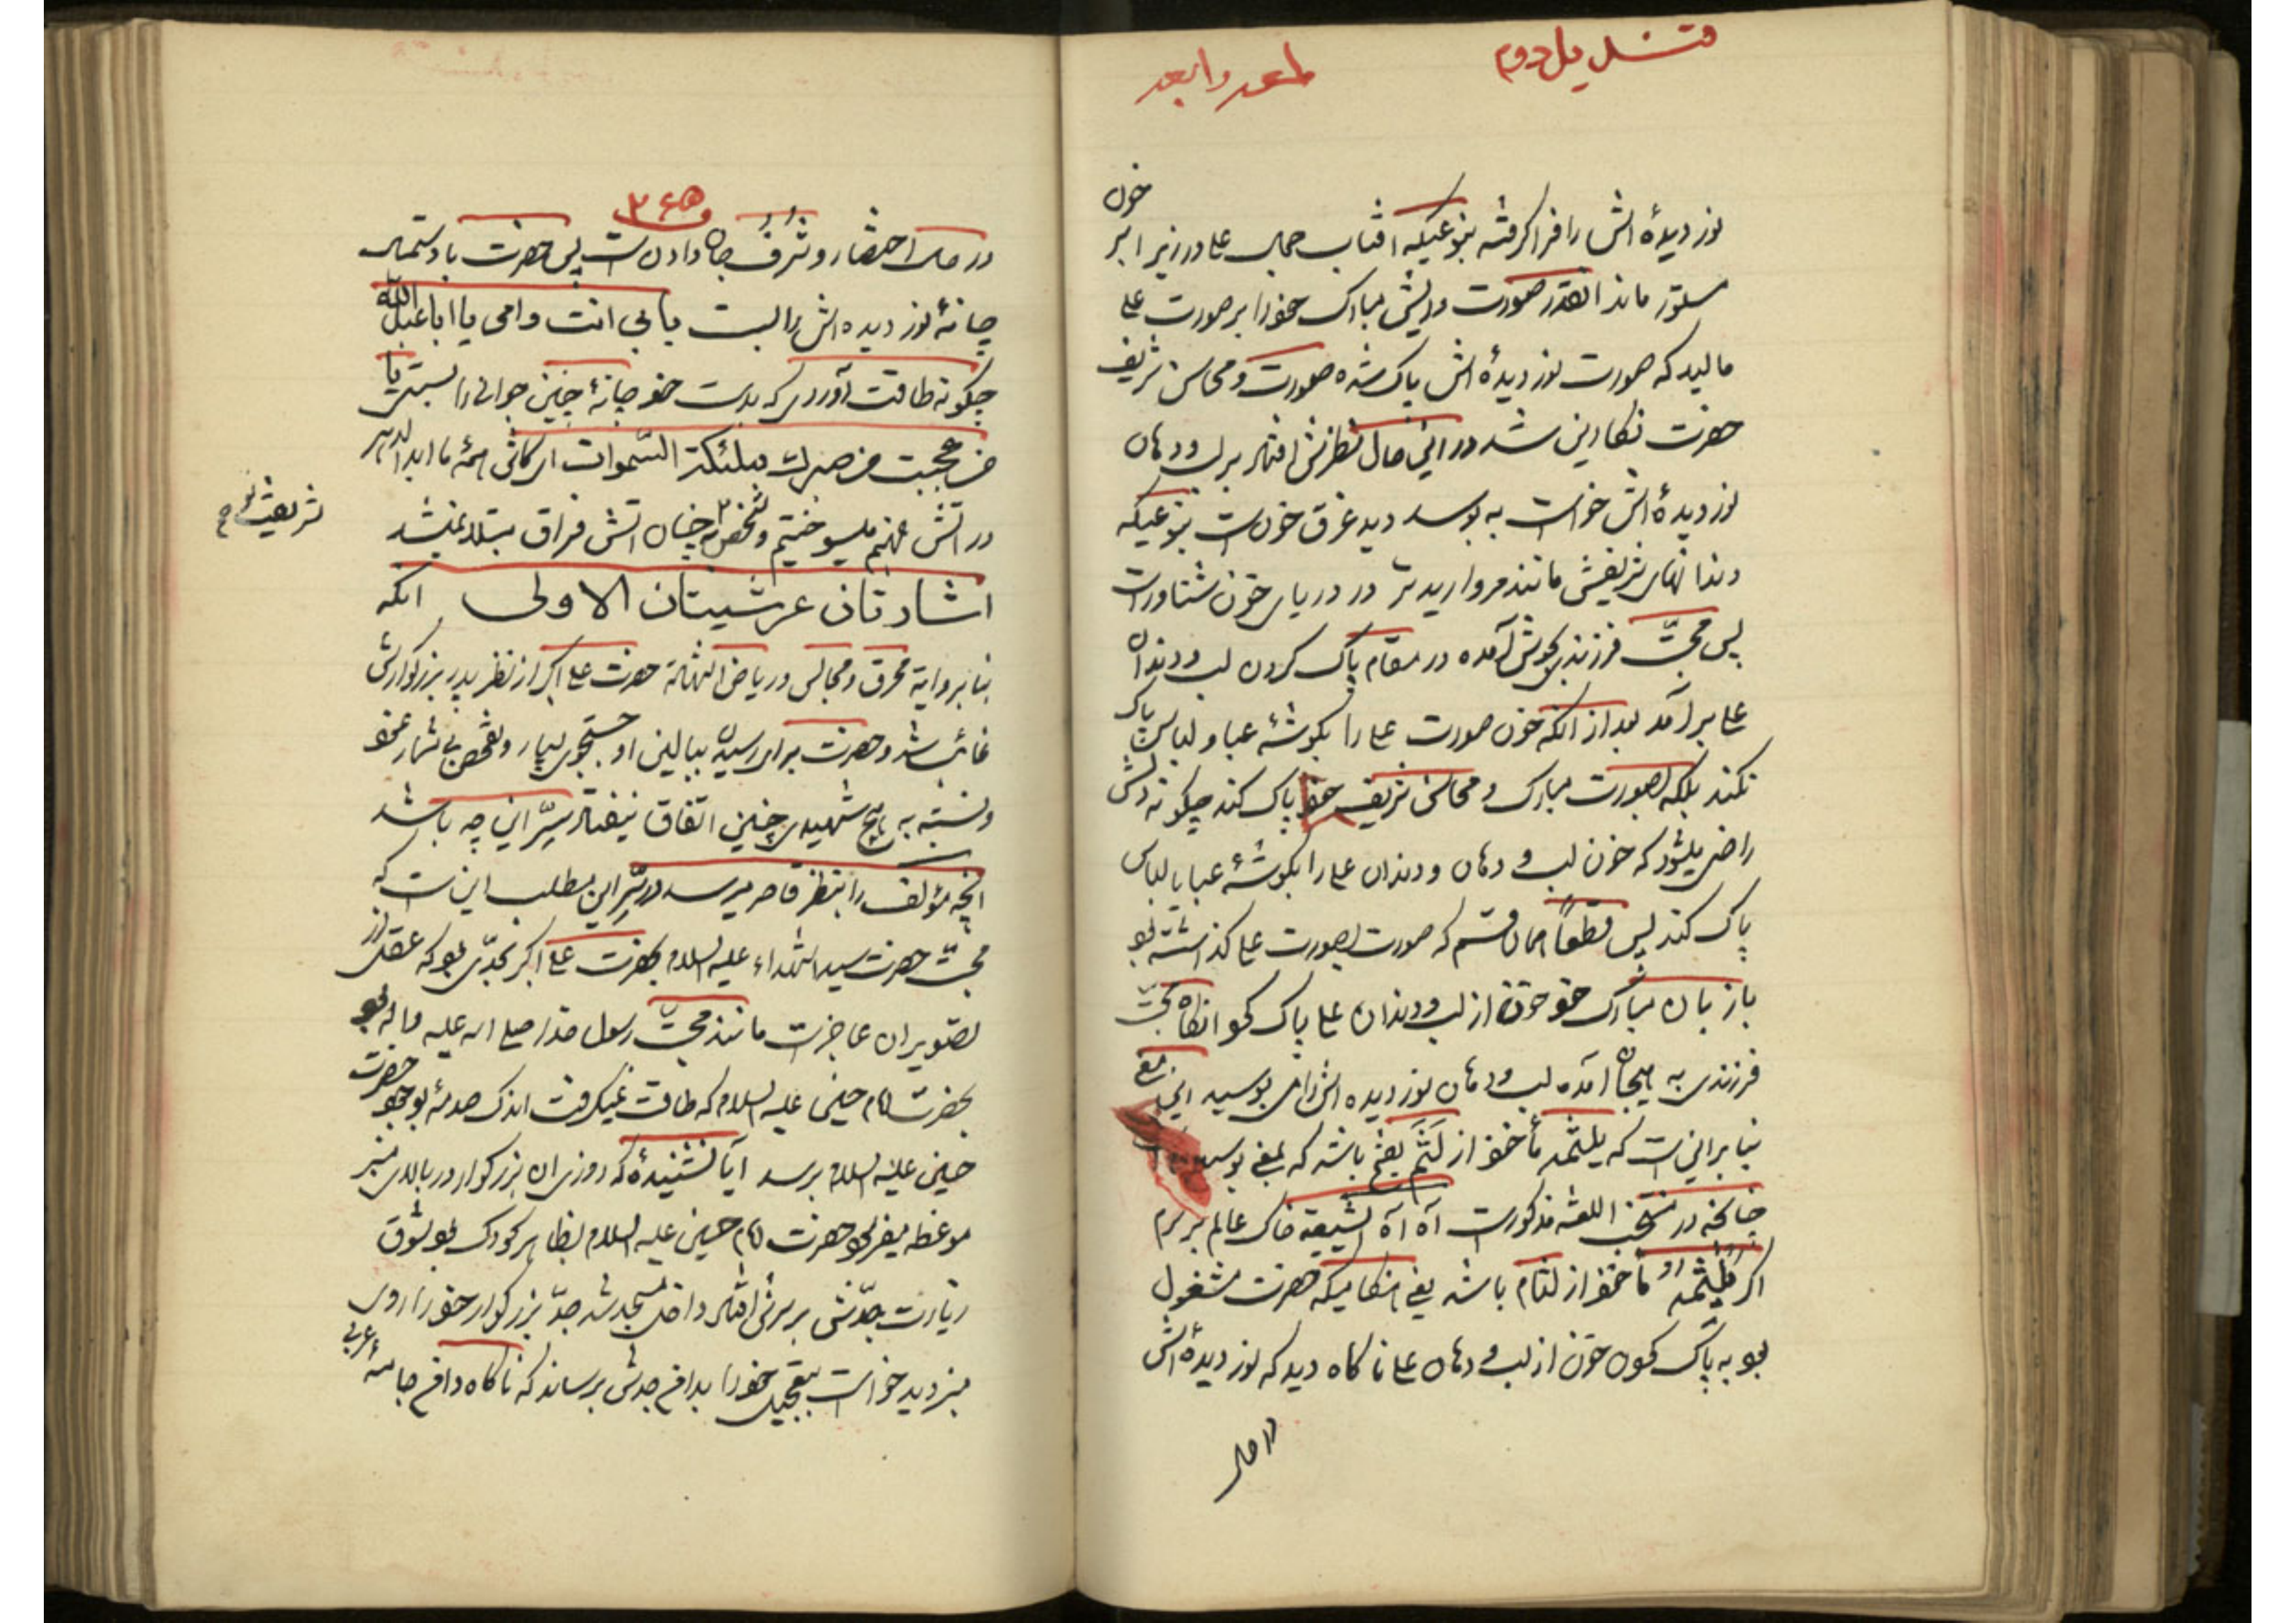 خون
نوردیدهٔ اش را فرا گرفته بنوعیکه افتاب جمال علی در زیر ابر
مستور ماند انقدر صورت و ریش مبارک خود را بر صورت علی
مالید که صورت نوردیدهٔ اش پاک شده صورت و محاسن شریف
حضرت نکارین شد در این حال نظرش افتاد بر لب و دهان
نوردیدهٔ اش خواست به بوسد دید غرق خون است بنوعیکه
دندانهای شریفش مانند مروارید تر در دریای خون شناور است
پس محبّت فرزندی بجوش آمده در مقام پاک کردن لب و دندان
علی برآمد بعد از انکه خون صورت علی را بکوشهٔ عبا و لباس پاک
نکند بلکه بصورت مبارک و محاسن شریف خود پاک کند چکونه دلش
راضی میشود که خون لب و دهان و دندان علی را بکوشهٔ عبا یا لباس
پاک کند پس قطعاً همان قسم که صورت بصورت علی کذاشته بود
با زبان مبارک خود خون از لب و دندان علی پاک کرد انکاه محبّت
فرزندی به هیجان آمده لب و دهان نوردیده اش را می بوسید این معنی
بنابر این است که یلثمه مأخوذ از لَثَمَ یلثم باشد که بمعنی بوسیدن
چنانچه در منتخب اللغه مذکور است آه آه الشیعة خاک عالم بر سرم
اکر یلثمه مأخوذ از لثام باشد یعنی هنکامیکه حضرت مشغول
بود به پاک کردن خون از لب و دهان علی ناکاه دید که نوردیدهٔ اش
در حال
در حال احتضار و شرف جان دادن است پس حضرت با دستمال
چانهٔ نوردیده اش را بست بابی انت و امی یا ابا عبدالله
چکونه طاقت آوردی که بدست خود چانهٔ چنین جوانی را بستی یا
من عجبت من صبرک ملئکة السّموات ای کاش همهٔ ما ابد الدهر
در اتش جهنم میسوختیم و شخص تو چنان اتش فراق مبتلا نمیشد
اشارتان عرشیتان الاولی انکه
بنابر روایة محرق و مجالس و ریاض الشهادة حضرت علی اکبر از نظر پدر بزرکوارش
غائب شد و حضرت برای رسیدن ببالین او جستجوی بسیار و تفحص بی شمار نمود
و نسبت به هیچ شهیدی چنین اتفاق نیفتاد سِرّ این چه باشد
انچه مؤلف را بنظر قاصر میرسد در سِرّ این مطلب این است که
محبّت حضرت سید الشهداء علیه السلام بحضرت علی اکبر بحدّی بود که عقل از
تصویر ان عاجز است مانند محبّت رسول خدا صلی الله علیه و اله بود
بحضرت امام حسین علیه السلام که طاقت نمیکرفت اندک صدمهٔ بوجود حضرت
حسین علیه السلام برسد آیا نشنیدهٔ که روزی ان بزرکوار در بالای منبر
موعظه میفرمود حضرت امام حسین علیه السلام بظاهر کودک بود شوق
زیارت جدّش بر سرش افتاد داخل مسجد شد جدّ بزرکوار خود را روی
منبر دید خواست بتعجیل خود را بدامن جدش برساند که ناکاه دامن جامهٔ عربی